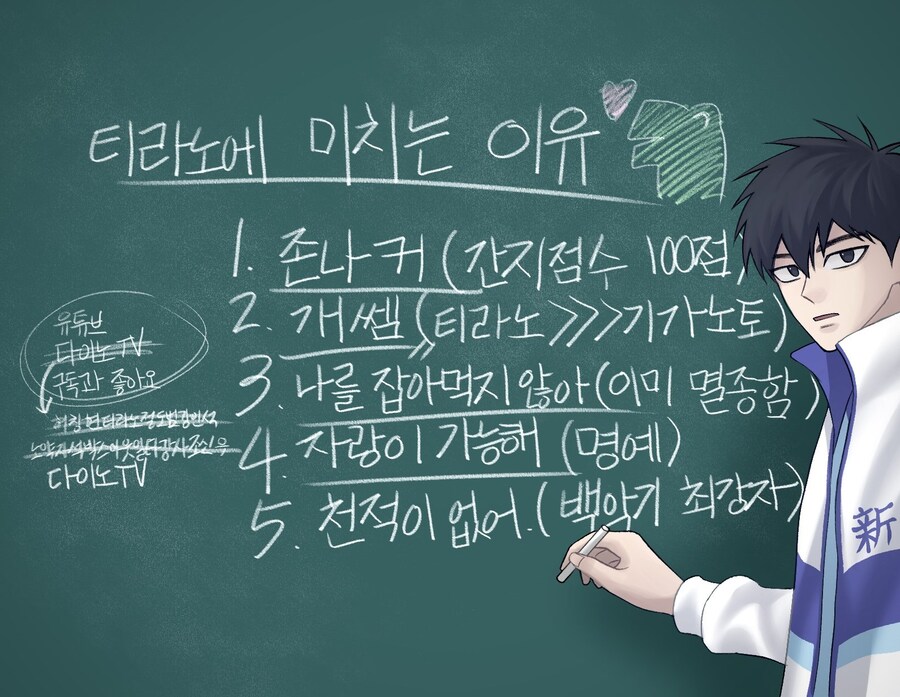 티라노에 미치는 이유
1. 존나 커 (간지점수 100점)
2. 개쎔 (티라노>>>>기가노토)
3. 나를 잡아먹지 않아 (이미 멸종함)
4. 자랑이 가능해 (명예)
5. 천적이 없어. (백악기 최강자)
유튜브
다이노TV
구독과 좋아요
다이노TV
新